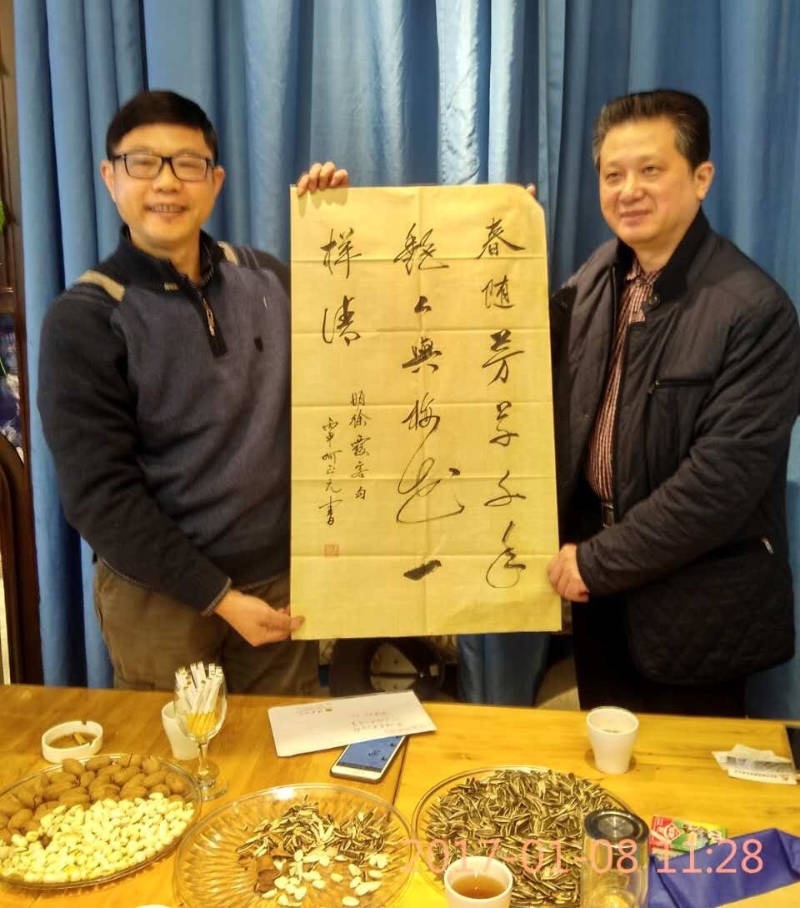 春随芳草千年
艳人与梅花一
样清
明徐霞客句
丙申 正元书
2017-01-08 11:28